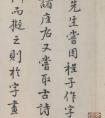 先生嘗因程子作字
諸座右又嘗取古詩
而擬之則於字畫